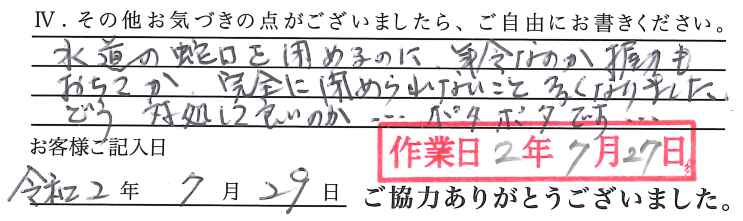 Ⅳ．その他お気づきの点がございましたら、ご自由にお書きください。
水道の蛇口を閉めるのに、年令なのか握力も
おちてか、完全に閉められないこと多くなりました、
どう対処して良いのか……ポタポタです……
お客様ご記入日
作業日 2年 7月27日
令和2年 7月 29日 ご協力ありがとうございました。